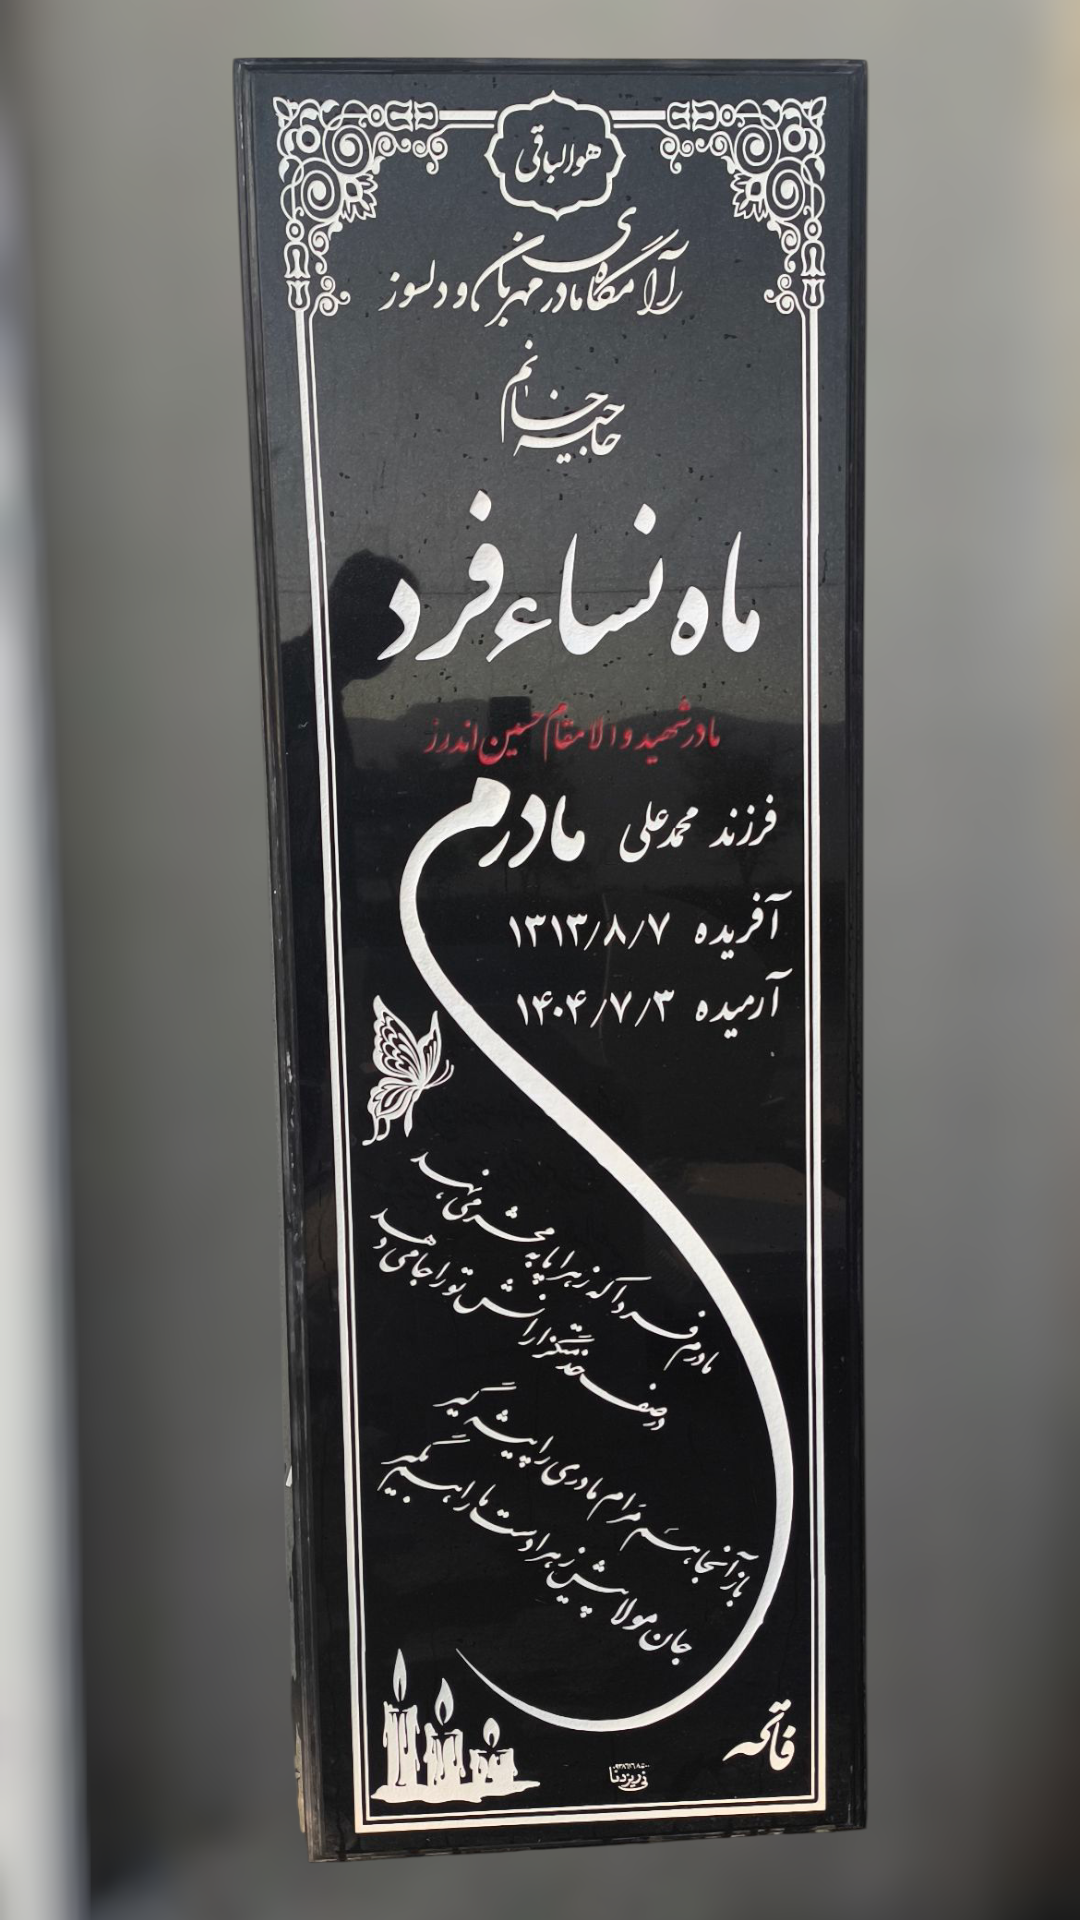 هوالباقی
آرامگاه مادری مهربان و دلسوز
حاجیه خانم
ماه نساء فرد
مادر شهید والامقام حسین اندرز
فرزند محمدعلی
مادرم
آفریده ۱۳۱۳/۸/۷
آرمیده ۱۴۰۴/۷/۳
مادرم فردا که زهرا پا به محشر می نهد
در صف خدمتگزارانش تو را جا می دهد
باز آنجا هم مَرام مادری را پیشه گیر
جان مولا پیش زهرا دست ما را هم بگیر
فاتحه